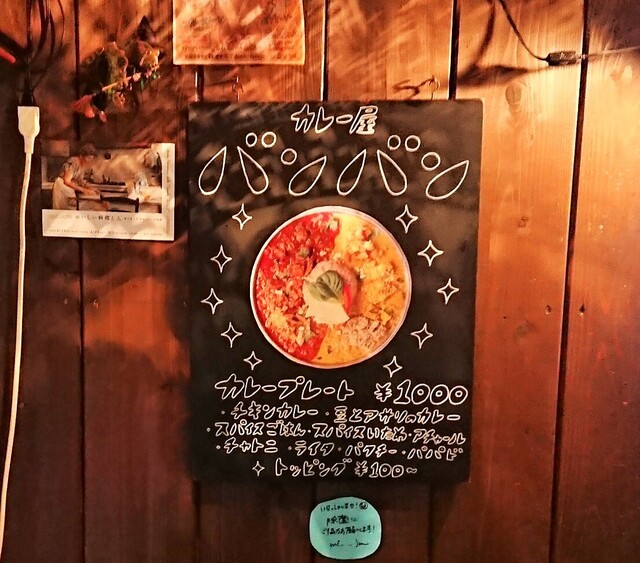 カレー屋
バンバン
カレープレート ¥1000
・チキンカレー・豆とアサリのカレー
・スパイスごはん・スパイスいため・アチャール
・チャトニ ・ライタ・パクチー・パパド
トッピング ¥100~